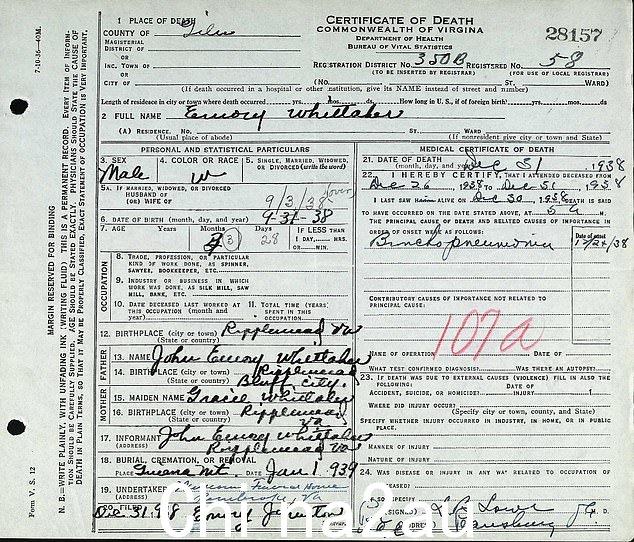 CERTIFICATE OF DEATH
COMMONWEALTH OF VIRGINA
DEPARTMENT OF HEALTH
BUREAU OF VITAL STATISTICS
28157
1 PLACE OF DEATH
COUNTY OF Giles
MAGISTERIAL
DISTRICT OF
OR
INC. TOWN OF
OR
CITY OF
REGISTRATION DISTRICT No. 350B REGISTERED No. 58
(TO BE INSERTED BY REGISTRAR) (FOR USE OF LOCAL REGISTRAR)
(No. ST. WARD)
(If death occurred in a hospital or other institution, give its NAME instead of street and number)
Length of residence in city or town where death occurred yrs. mos. ds. How long in U. S., if of foreign birth? yrs. mos. ds.
2 FULL NAME Emory Whittaker
(A) RESIDENCE. No. ST. WARD
(Usual place of abode) (If nonresident give city or town and State)
PERSONAL AND STATISTICAL PARTICULARS
3. SEX
Male
4. COLOR OR RACE
W
5. SINGLE, MARRIED, WIDOWED, OR DIVORCED (write the word)
5A. IF MARRIED, WIDOWED, OR DIVORCED
HUSBAND OF
(OR) WIFE OF
9/3/38 over
6. DATE OF BIRTH (month, day, and year) 9-31-38
7. AGE Years Months Days IF LESS THAN
3 28
1 DAY, HRS.
OR MIN.
OCCUPATION
8. TRADE, PROFESSION, OR PARTICULAR
KIND OF WORK DONE, AS SPINNER,
SAWYER, BOOKKEEPER, ETC.
9. INDUSTRY OR BUSINESS IN WHICH
WORK WAS DONE, AS SILK MILL, SAW
MILL, BANK, ETC.
10. DATE DECEASED LAST WORKED AT
THIS OCCUPATION (month and
year)
11. TOTAL TIME (YEARS)
SPENT IN THIS
OCCUPATION
12. BIRTHPLACE (city or town) Ripplemead Va
(State or country)
FATHER
13. NAME John Emory Whittaker
14. BIRTHPLACE (city or town) Ripplemead
(State or country) Bluff City.
MOTHER
15. MAIDEN NAME Gracie Whittaker
16. BIRTHPLACE (city or town) Ripplemead
(State or country) Va
17. INFORMANT John Emory Whittaker
(ADDRESS) Ripplemead Va
18. BURIAL, CREMATION, OR REMOVAL
PLACE DATE Jan 1 1939
19. UNDERTAKER Funeral Home
(ADDRESS) Pembroke Va
20. FILED Dec 31 1938 Emory Johnston
MEDICAL CERTIFICATE OF DEATH
21. DATE OF DEATH
(month, day, and year) Dec 31 1938
22. I HEREBY CERTIFY, THAT I ATTENDED DECEASED FROM
Dec 26 1938 TO Dec 31 1938
I LAST SAW ALIVE ON Dec 30 1938 DEATH IS SAID
TO HAVE OCCURRED ON THE DATE STATED ABOVE, AT 5 a M.
THE PRINCIPAL CAUSE OF DEATH AND RELATED CAUSES OF IMPORTANCE IN
ORDER OF ONSET WERE AS FOLLOWS:
Date of onset
Bronchopneumonia 12/26/38
CONTRIBUTORY CAUSES OF IMPORTANCE NOT RELATED TO
PRINCIPAL CAUSE:
107a
NAME OF OPERATION DATE OF
WHAT TEST CONFIRMED DIAGNOSIS? WAS THERE AN AUTOPSY?
23. IF DEATH WAS DUE TO EXTERNAL CAUSES (VIOLENCE) FILL IN ALSO THE
FOLLOWING:
ACCIDENT, SUICIDE, OR HOMICIDE? DATE OF INJURY 1
WHERE DID INJURY OCCUR?
(Specify city or town, county, and State)
SPECIFY WHETHER INJURY OCCURRED IN INDUSTRY, IN HOME, OR IN PUBLIC
PLACE.
MANNER OF INJURY
NATURE OF INJURY
24. WAS DISEASE OR INJURY IN ANY WAY RELATED TO OCCUPATION OF
DECEASED?
IF SO SPECIFY
(SIGNED) M. D.
ADDRESS Pearisburg
7-10-36—40M.
MARGIN RESERVED FOR BINDING
N. B.—WRITE PLAINLY, WITH UNFADING INK (WRITING FLUID) THIS IS A PERMANENT RECORD. Every Item of Information Should Be Carefully Supplied. AGE Should be Stated EXACTLY. PHYSICIANS Should State the CAUSE OF DEATH in Plain Terms, so That it May be Properly Classified. Exact Statement of OCCUPATION is Very Important.
Form V. S. 12